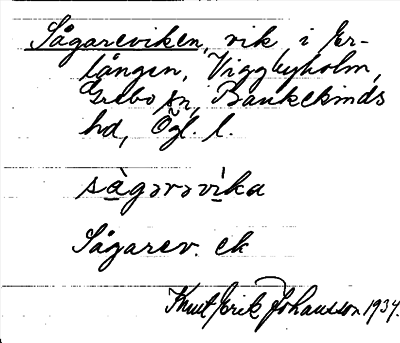 Sågareviken, vik i Er-
lången, Viggbyholm,
Grebo sn, Bankekinds
hd, Ögl. l.
sàgərəvìka
Sågarev. ek
Knut Erik Johansson 1934.